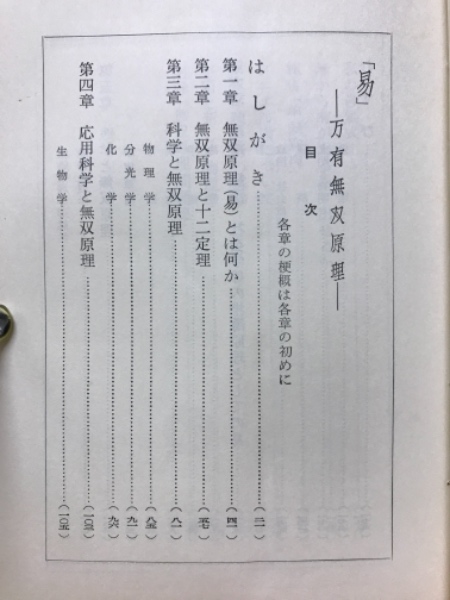 「易」
―万有無双原理―
目次
各章の梗概は各章の初めに
はしがき……(二一)
第一章 無双原理(易)とは何か……(四一)
第二章 無双原理と十二定理……(五七)
第三章 科学と無双原理……(八一)
物理学……(八五)
分光学……(九一)
化学……(九六)
第四章 応用科学と無双原理……(一〇三)
生物学……(一〇五)